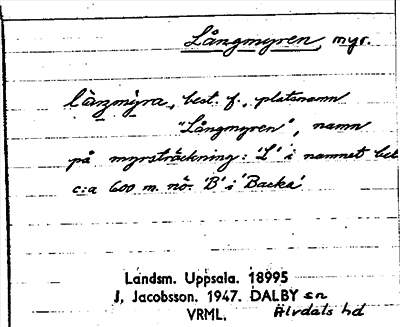 Långmyren, myr.
làŋmýra, best. f., platsnamn
"Långmyren", namn
på myrsträckning: 'L' i namnet bet
c:a 600 m. nö. 'B' i 'Backa'
Landsm. Uppsala. 18995
J. Jacobsson. 1947. DALBY sn
VRML. Älvdals hd